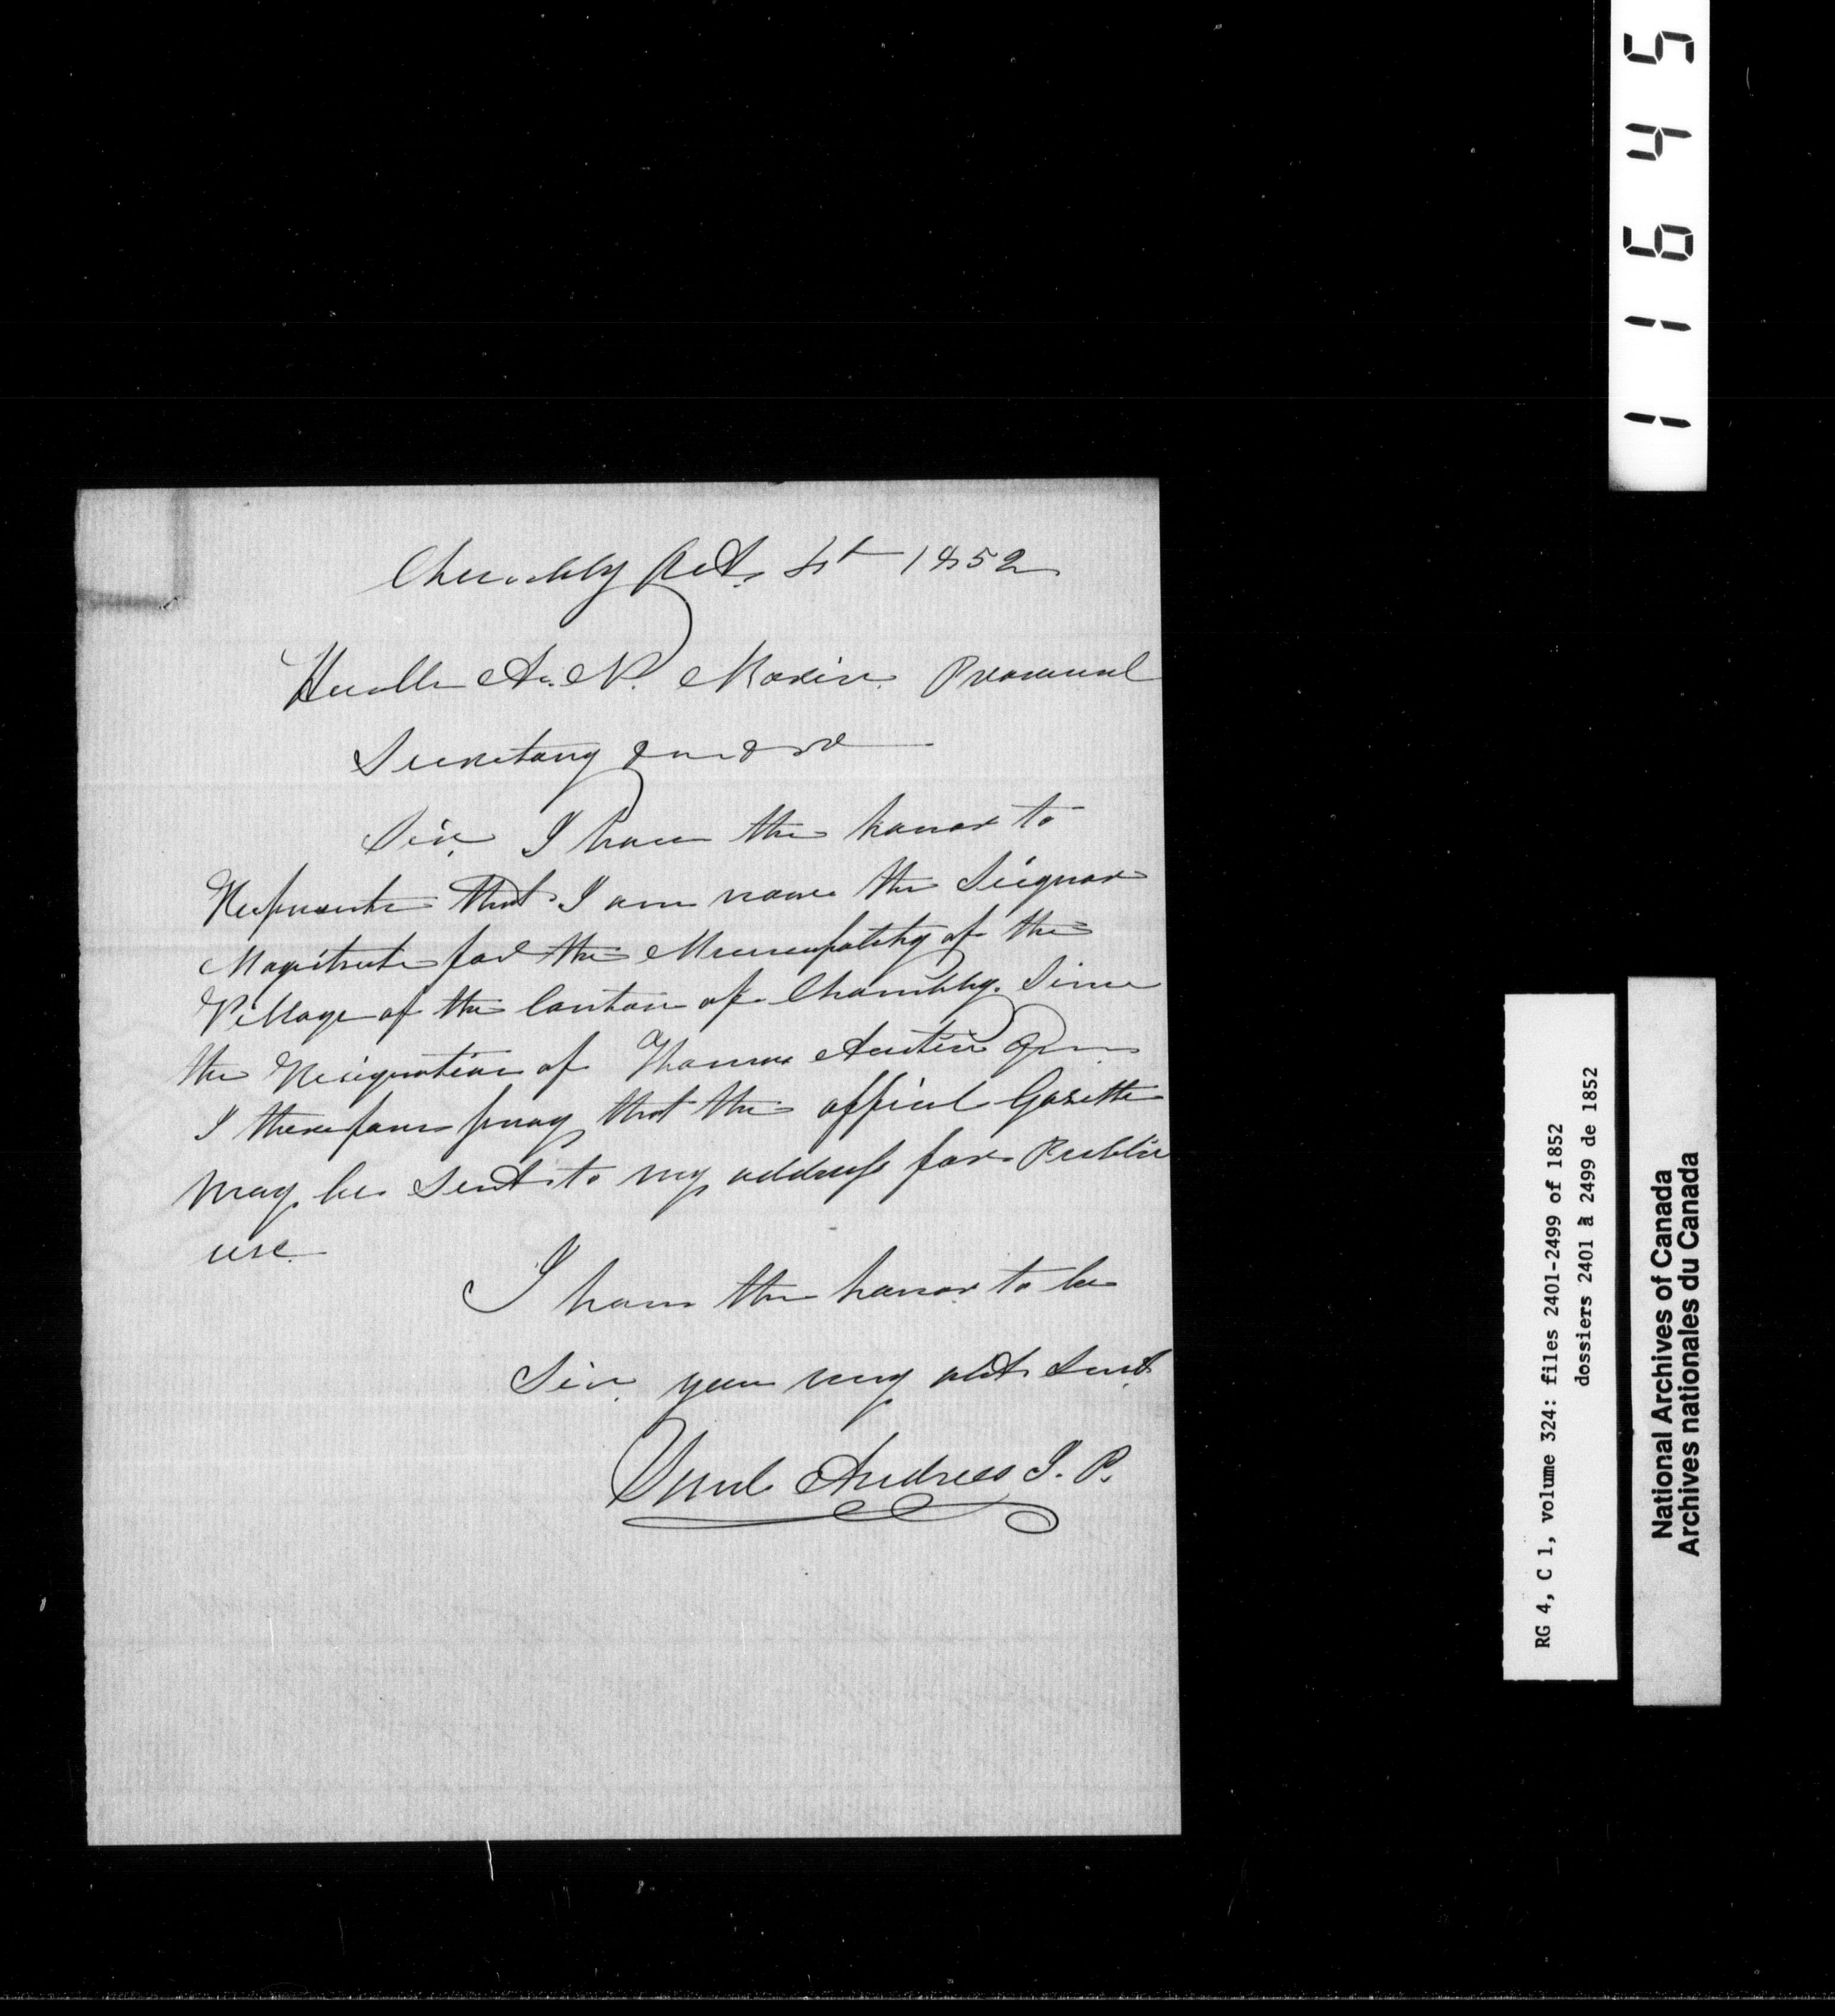 Chambly Oct. 4t 1852
Honble A. N. Morin Provincial
Secretary
Sir. I have the honor to
Represente that I am now the Seignor
Magistrate for the Municipality of the
Village of the Canton of Chambly. Since
the Resignation of Thomas Austin
I therefore pray that the official Gazette
may be sent to my address for Public
use.
I have the honor to be
Sir your very obt Servt
Andress J. P.
11645
RG 4, C 1, volume 324: files 2401-2499 of 1852
dossiers 2401 à 2499 de 1852
National Archives of Canada
Archives nationales du Canada